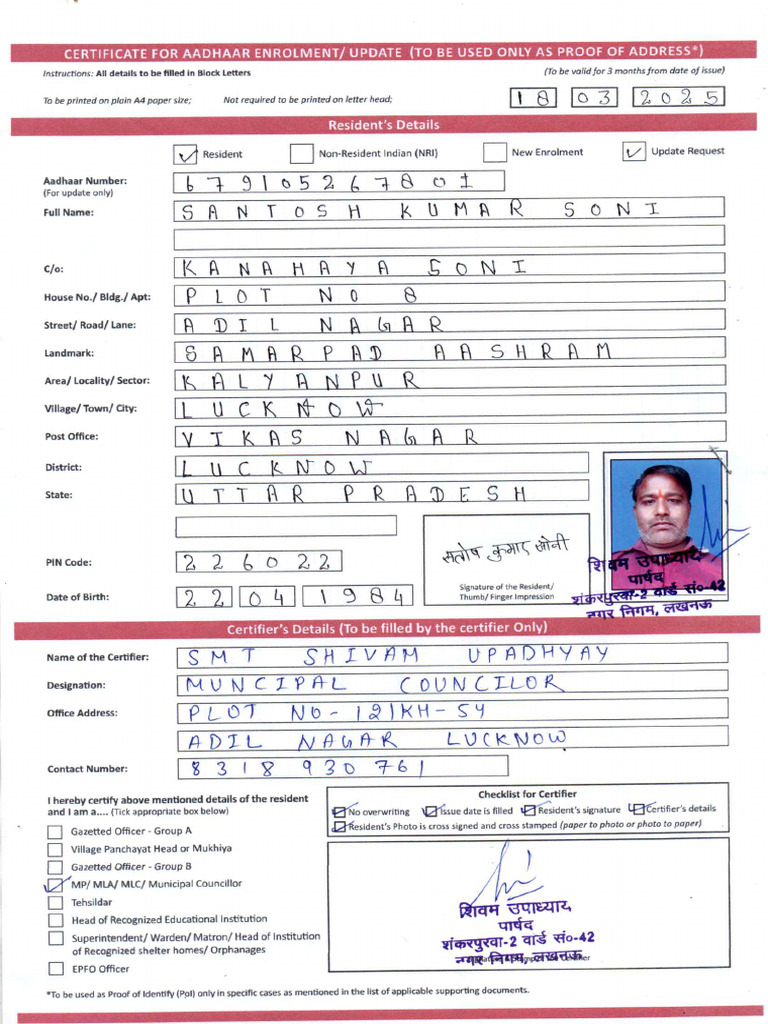 CERTIFICATE FOR AADHAAR ENROLMENT/ UPDATE (TO BE USED ONLY AS PROOF OF ADDRESS*)
Instructions: All details to be filled in Block Letters (To be valid for 3 months from date of issue)
To be printed on plain A4 paper size; Not required to be printed on letter head; 18 03 2025
Resident's Details
Resident Non-Resident Indian (NRI) New Enrolment Update Request
Aadhaar Number: 679105267801
(For update only)
Full Name: SANTOSH KUMAR SONI
C/o: KANAHAYA SONI
House No./ Bldg./ Apt: PLOT NO 8
Street/ Road/ Lane: ADIL NAGAR
Landmark: SAMARPAD AASHRAM
Area/ Locality/ Sector: KALYANPUR
Village/ Town/ City: LUCKNOW
Post Office: VIKAS NAGAR
District: LUCKNOW
State: UTTAR PRADESH
संतोष कुमार सोनी
PIN Code: 226022
Signature of the Resident/
Thumb/ Finger Impression
Date of Birth: 22 04 1984
शिवम उपाध्याय
पार्षद
शंकरपुरवा-2 वार्ड सं०-42
नगर निगम, लखनऊ
Certifier's Details (To be filled by the certifier Only)
Name of the Certifier: SMT SHIVAM UPADHYAY
Designation: MUNCIPAL COUNCILOR
Office Address: PLOT NO-121KH-54
ADIL NAGAR LUCKNOW
Contact Number: 8318930761
I hereby certify above mentioned details of the resident
and I am a.... (Tick appropriate box below)
Checklist for Certifier
No overwriting Issue date is filled Resident's signature Certifier's details
Resident's Photo is cross signed and cross stamped (paper to photo or photo to paper)
Gazetted Officer - Group A
Village Panchayat Head or Mukhiya
Gazetted Officer - Group B
MP/ MLA/ MLC/ Municipal Councillor
Tehsildar
Head of Recognized Educational Institution
Superintendent/ Warden/ Matron/ Head of Institution
of Recognized shelter homes/ Orphanages
EPFO Officer
शिवम उपाध्याय
पार्षद
शंकरपुरवा-2 वार्ड सं०-42
नगर निगम, लखनऊ
*To be used as Proof of Identify (PoI) only in specific cases as mentioned in the list of applicable supporting documents.